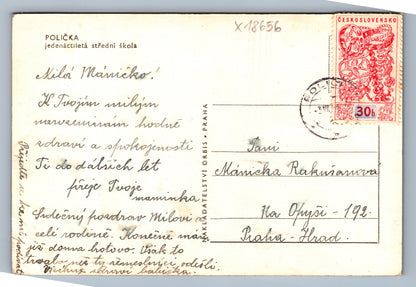 POLIČKA
jedenáctiletá střední škola
X18656
ČESKOSLOVENSKO
30h
Milá Máničko!
K Tvojim milým
narozeninám hodně
zdraví a spokojenosti
Ti do dalších let
přeje Tvoje
maminka
Srdečný pozdrav Milovi a
celé rodině. Konečně mám
již doma hotovo. Však to
trvalo než ty řemeslníci odešli.
zdraví babička.
Přijeďte se ke mně podívat
NAKLADATELSTVÍ ORBIS - PRAHA
Paní
Mánička Rakušanová
Na Opyši - 192.
Praha - Hrad.